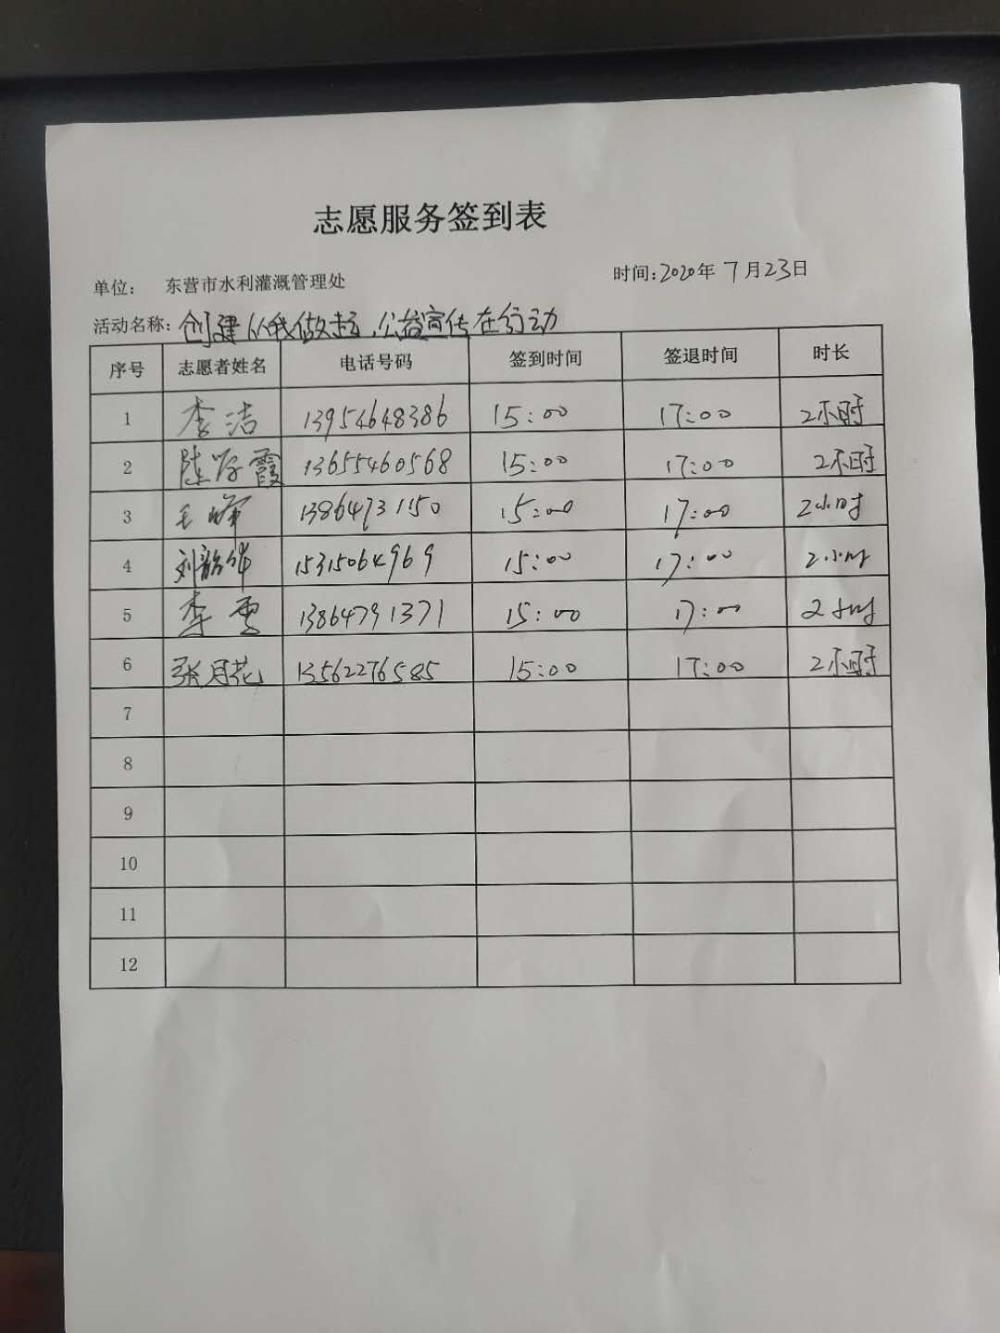 志愿服务签到表
单位： 东营市水利灌溉管理处 时间:2020年 7月23日
活动名称: 创建从我做起,公益宣传在行动
序号 志愿者姓名 电话号码 签到时间 签退时间 时长
1 李洁 13954648386 15:00 17:00 2小时
2 陈 霞 13655460568 15:00 17:00 2小时
3 毛峰 13864731150 15:00 17:00 2小时
4 刘韶华 15315064969 15:00 17:00 2小时
5 李雪 13864791371 15:00 17:00 2小时
6 张月花 13562276585 15:00 17:00 2小时
7
8
9
10
11
12